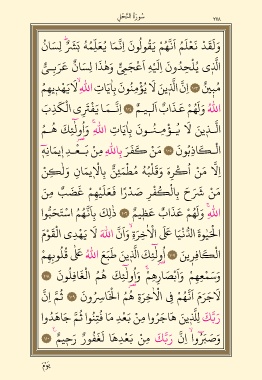 سُورَةُ النَّحْلِ ٢٧٨
وَلَقَدْ نَعْلَمُ أَنَّهُمْ يَقُولُونَ إِنَّمَا يُعَلِّمُهُ بَشَرٌ لِسَانُ
الَّذِي يُلْحِدُونَ إِلَيْهِ أَعْجَمِيٌّ وَهٰذَا لِسَانٌ عَرَبِيٌّ
مُبِينٌ ﴿١٠٣﴾ إِنَّ الَّذِينَ لَا يُؤْمِنُونَ بِآيَاتِ اللّٰهِ لَا يَهْدِيهِمُ
اللّٰهُ وَلَهُمْ عَذَابٌ أَلِيمٌ ﴿١٠٤﴾ إِنَّمَا يَفْتَرِي الْكَذِبَ
الَّذِينَ لَا يُؤْمِنُونَ بِآيَاتِ اللّٰهِ وَأُولٰئِكَ هُمُ
الْكَاذِبُونَ ﴿١٠٥﴾ مَنْ كَفَرَ بِاللّٰهِ مِنْ بَعْدِ إِيمَانِهِ
إِلَّا مَنْ أُكْرِهَ وَقَلْبُهُ مُطْمَئِنٌّ بِالْإِيمَانِ وَلٰكِنْ
مَنْ شَرَحَ بِالْكُفْرِ صَدْرًا فَعَلَيْهِمْ غَضَبٌ مِنَ
اللّٰهِ وَلَهُمْ عَذَابٌ عَظِيمٌ ﴿١٠٦﴾ ذٰلِكَ بِأَنَّهُمُ اسْتَحَبُّوا
الْحَيٰوةَ الدُّنْيَا عَلَى الْآخِرَةِ وَأَنَّ اللّٰهَ لَا يَهْدِي الْقَوْمَ
الْكَافِرِينَ ﴿١٠٧﴾ أُولٰئِكَ الَّذِينَ طَبَعَ اللّٰهُ عَلَى قُلُوبِهِمْ
وَسَمْعِهِمْ وَأَبْصَارِهِمْ وَأُولٰئِكَ هُمُ الْغَافِلُونَ ﴿١٠٨﴾
لَا جَرَمَ أَنَّهُمْ فِي الْآخِرَةِ هُمُ الْخَاسِرُونَ ﴿١٠٩﴾ ثُمَّ إِنَّ
رَبَّكَ لِلَّذِينَ هَاجَرُوا مِنْ بَعْدِ مَا فُتِنُوا ثُمَّ جَاهَدُوا
وَصَبَرُوا إِنَّ رَبَّكَ مِنْ بَعْدِهَا لَغَفُورٌ رَحِيمٌ ﴿١١٠﴾
يَوْمَ